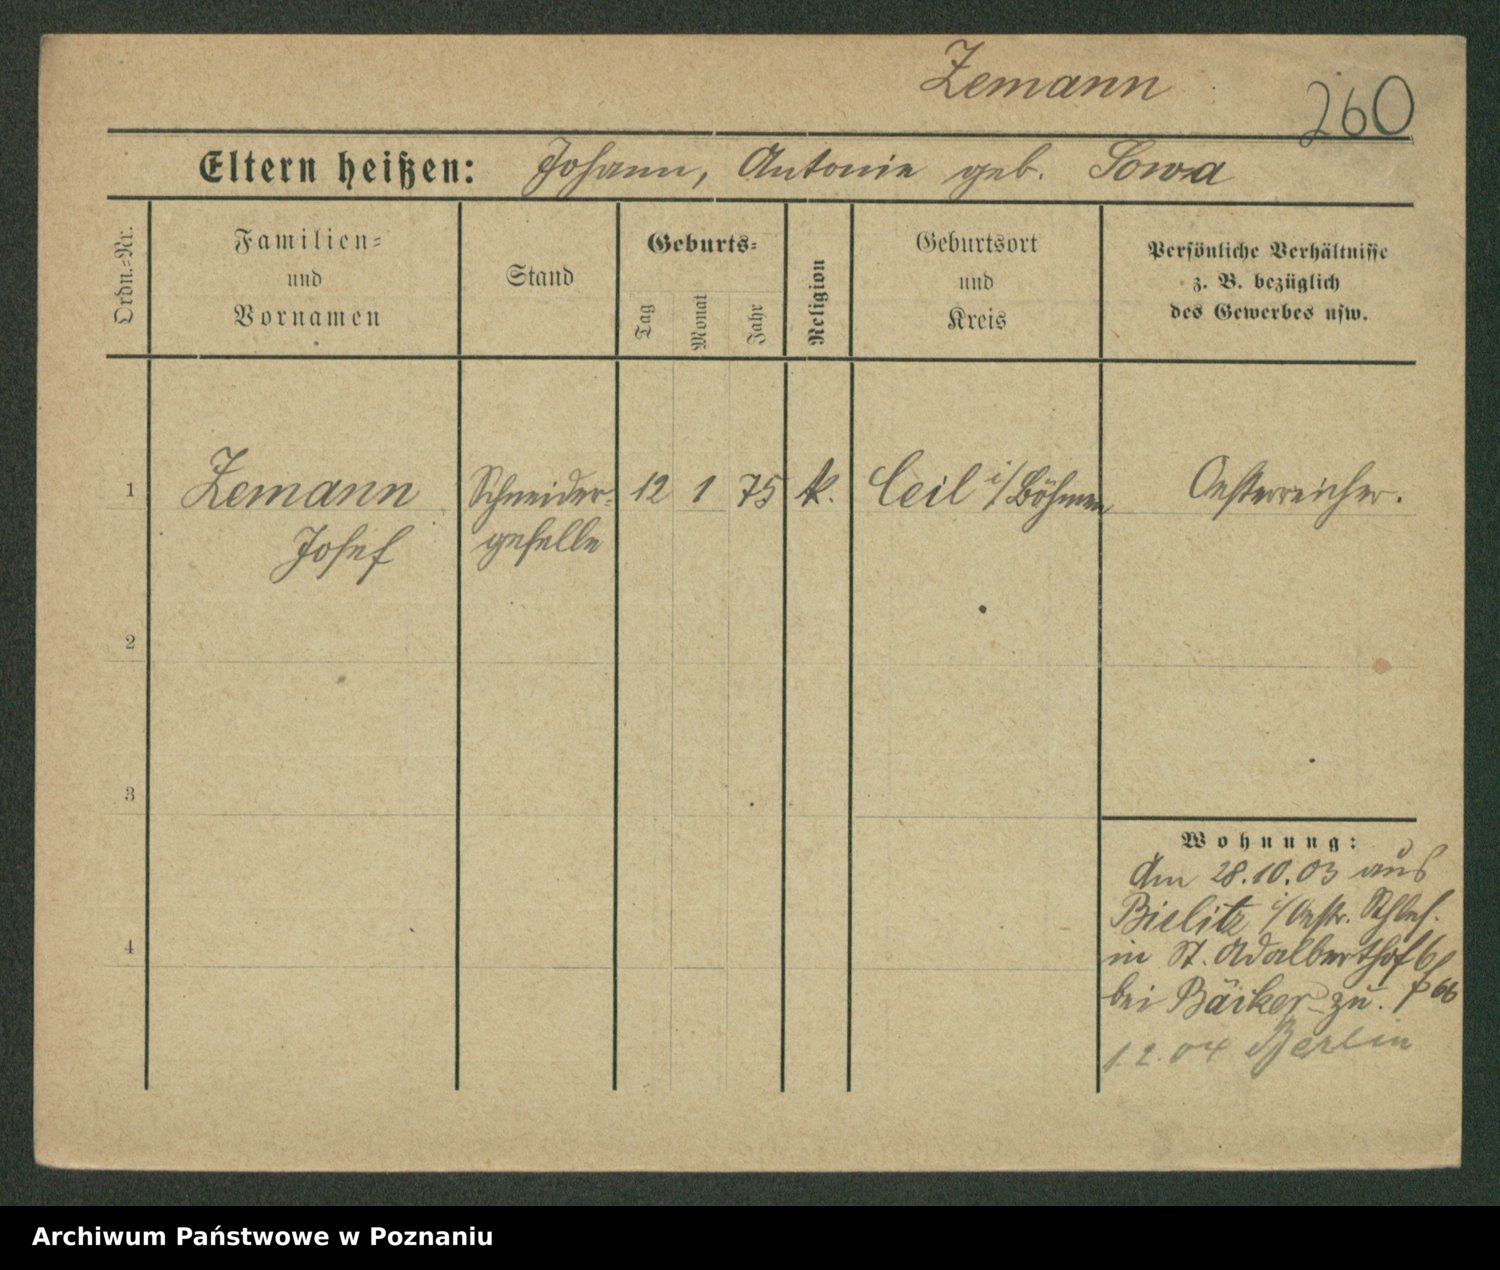 Zemann
260
Eltern heißen: Johann, Antonie geb. Sowa
Ordn.=Nr.
Familien=
und
Vornamen
Stand
Geburts=
Tag
Monat
Jahr
Religion
Geburtsort
und
Kreis
Persönliche Verhältnisse
z. B. bezüglich
des Gewerbes usw.
1 Zemann Schneider= 12 1 75 k. Ceil i/Böhmen Oesterreicher.
Josef geselle
2
3
4
Wohnung:
Am 28.10.03 aus
Bielitz i/Oestr. Schles.
in St. Adalberthof 6
bei Bäcker zu.
1.2.04 Berlin
Archiwum Państwowe w Poznaniu